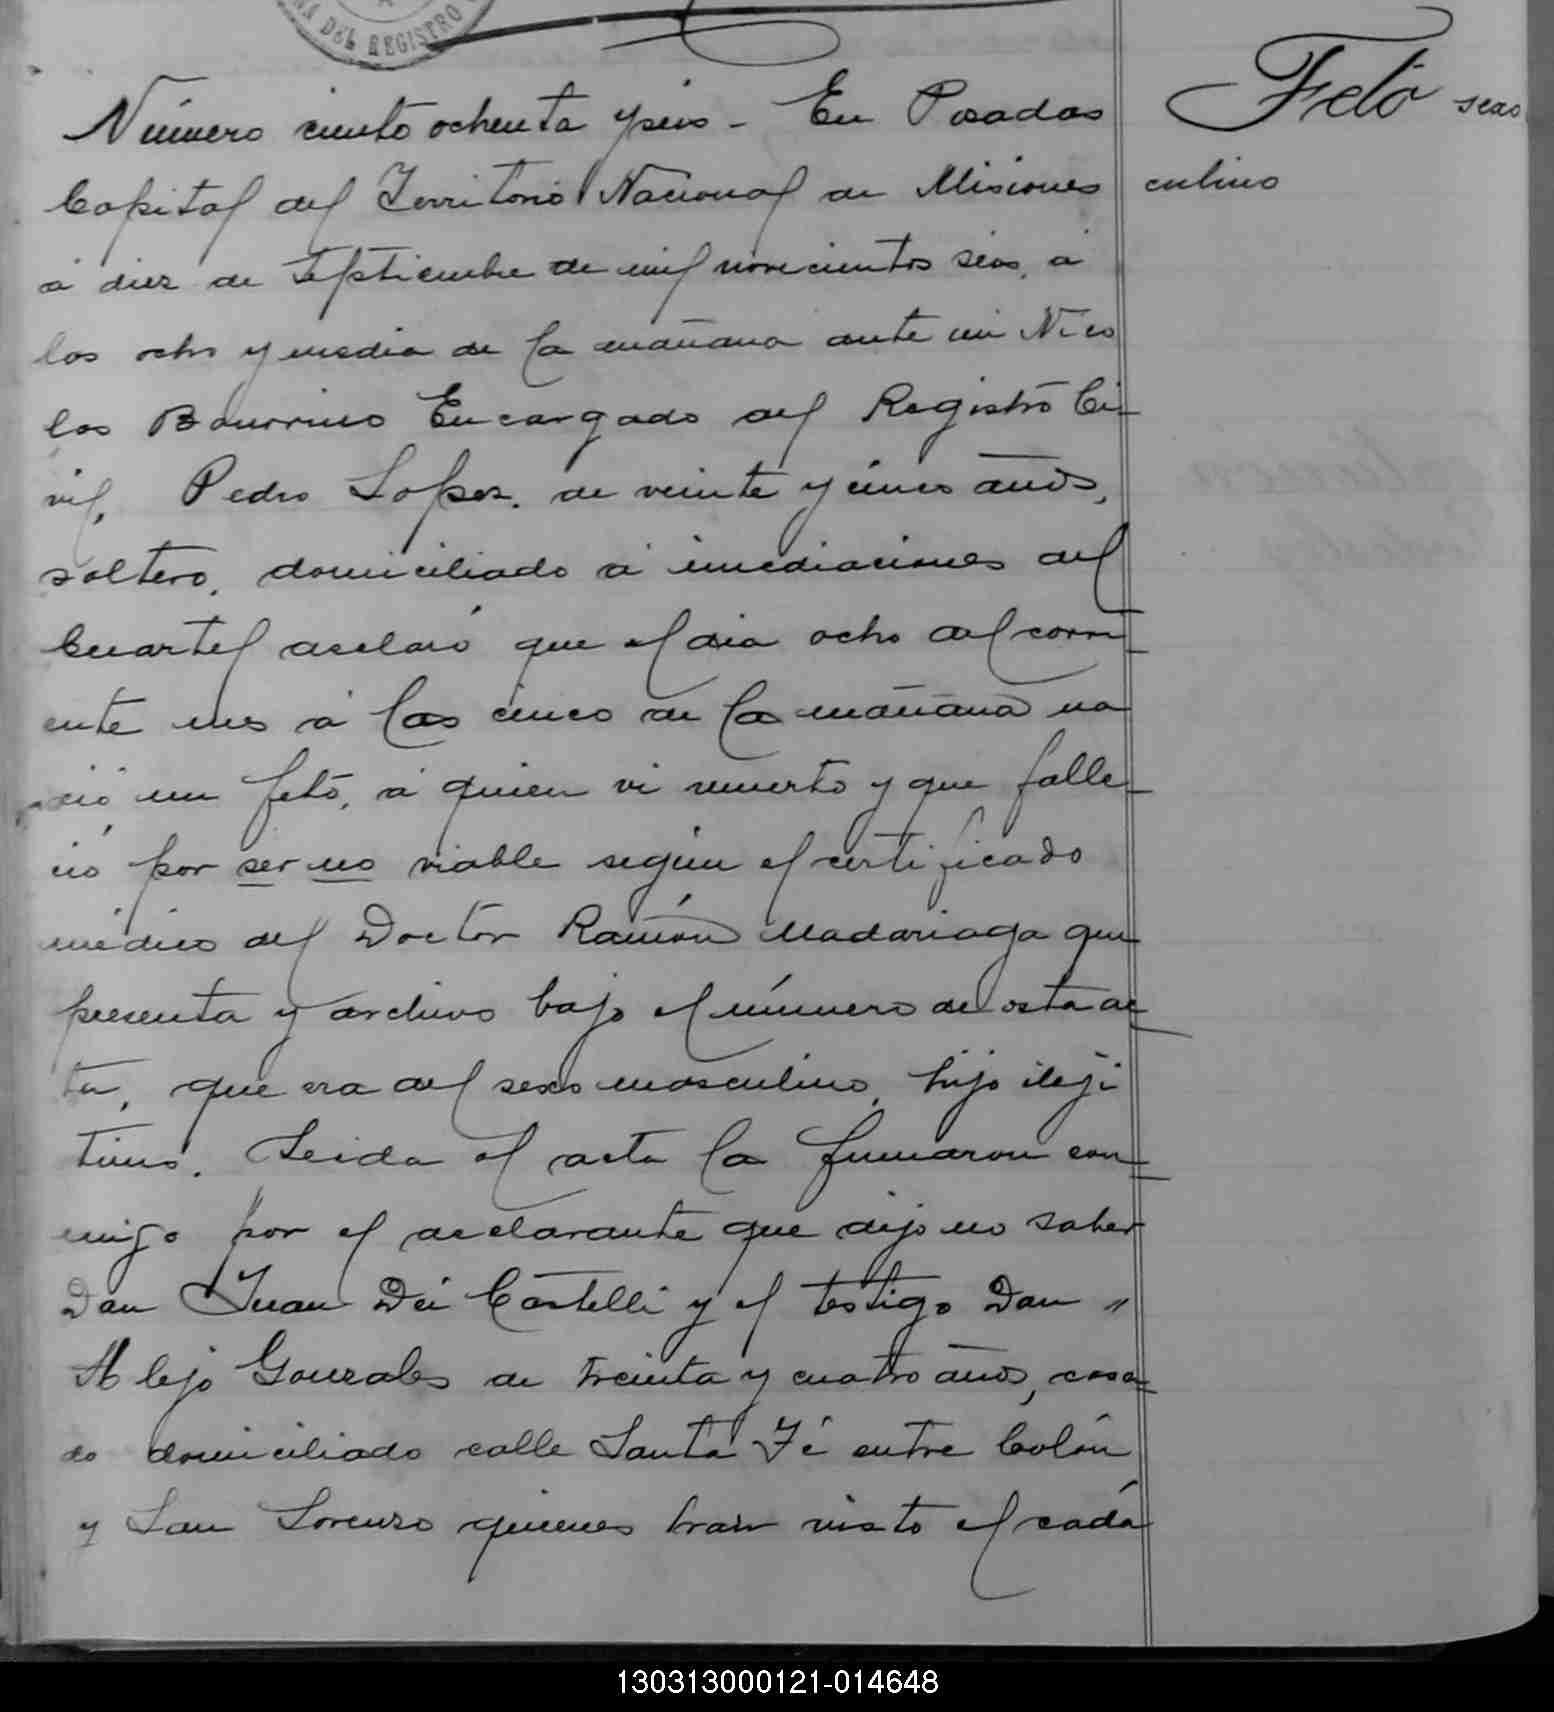 NA DEL REGISTRO
Número ciento ochenta y seis - En Posadas
Capital del Territorio Nacional de Misiones
á diez de Septiembre de mil novecientos seis, á
las ocho y media de la mañana ante mi Nico
las Bourrino Encargado del Registro Ci-
vil, Pedro Lopez, de veinte y cinco años,
soltero, domiciliado á inmediaciones del
Cuartel declaró que el dia ocho del corri-
ente mes á las cinco de la mañana na
ció un feto, á quien vi muerto y que falle-
ció por ser no viable según el certificado
médico del Doctor Ramón Madariaga que
presenta y archivo bajo el número de esta ac-
ta, que era del sexo masculino, hijo ileji
timo. Leida el acta la firmaron con-
migo por el declarante que dijo no saber
Don Juan Dei Castelli y el testigo Don "
Alejo Gonzales de treinta y cuatro años, casa-
do domiciliado calle Santa Fé entre Colón
y San Lorenzo quienes han visto el cadá
Feto sexo
culino
130313000121-014648